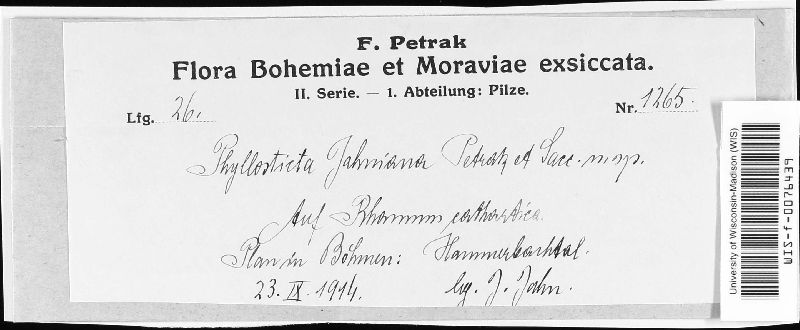 F. Petrak
Flora Bohemiae et Moraviae exsiccata.
II. Serie. — 1. Abteilung: Pilze.
Lfg. 26. Nr. 1265.
Phyllosticta Jahniana Petrak et Sacc. n. sp.
Auf Rhamnus cathartica.
Plan in Böhmen: Hammerbachtal.
23. IX. 1914. lg. J. Jahn.
University of Wisconsin-Madison (WIS)
WIS-f-0076439